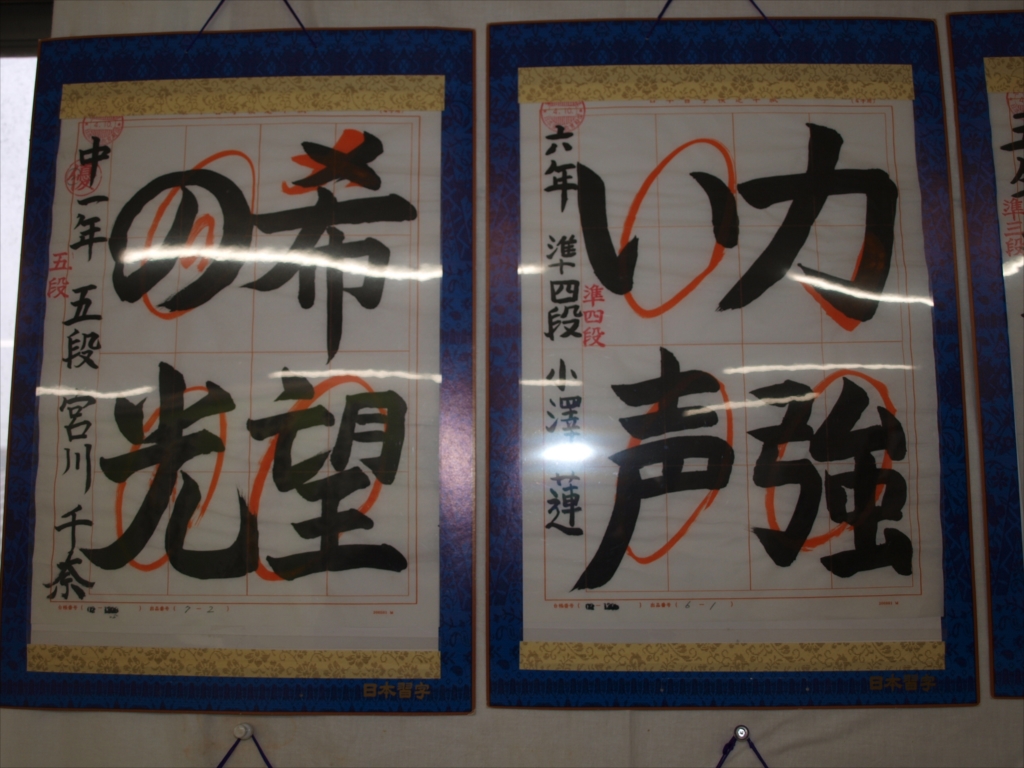 希望
の光
中一年 五段 宮川 千奈
五段
日本習字
力強
い声
六年 準四段 小澤 蓮
準四段
6-1
日本習字
準三段